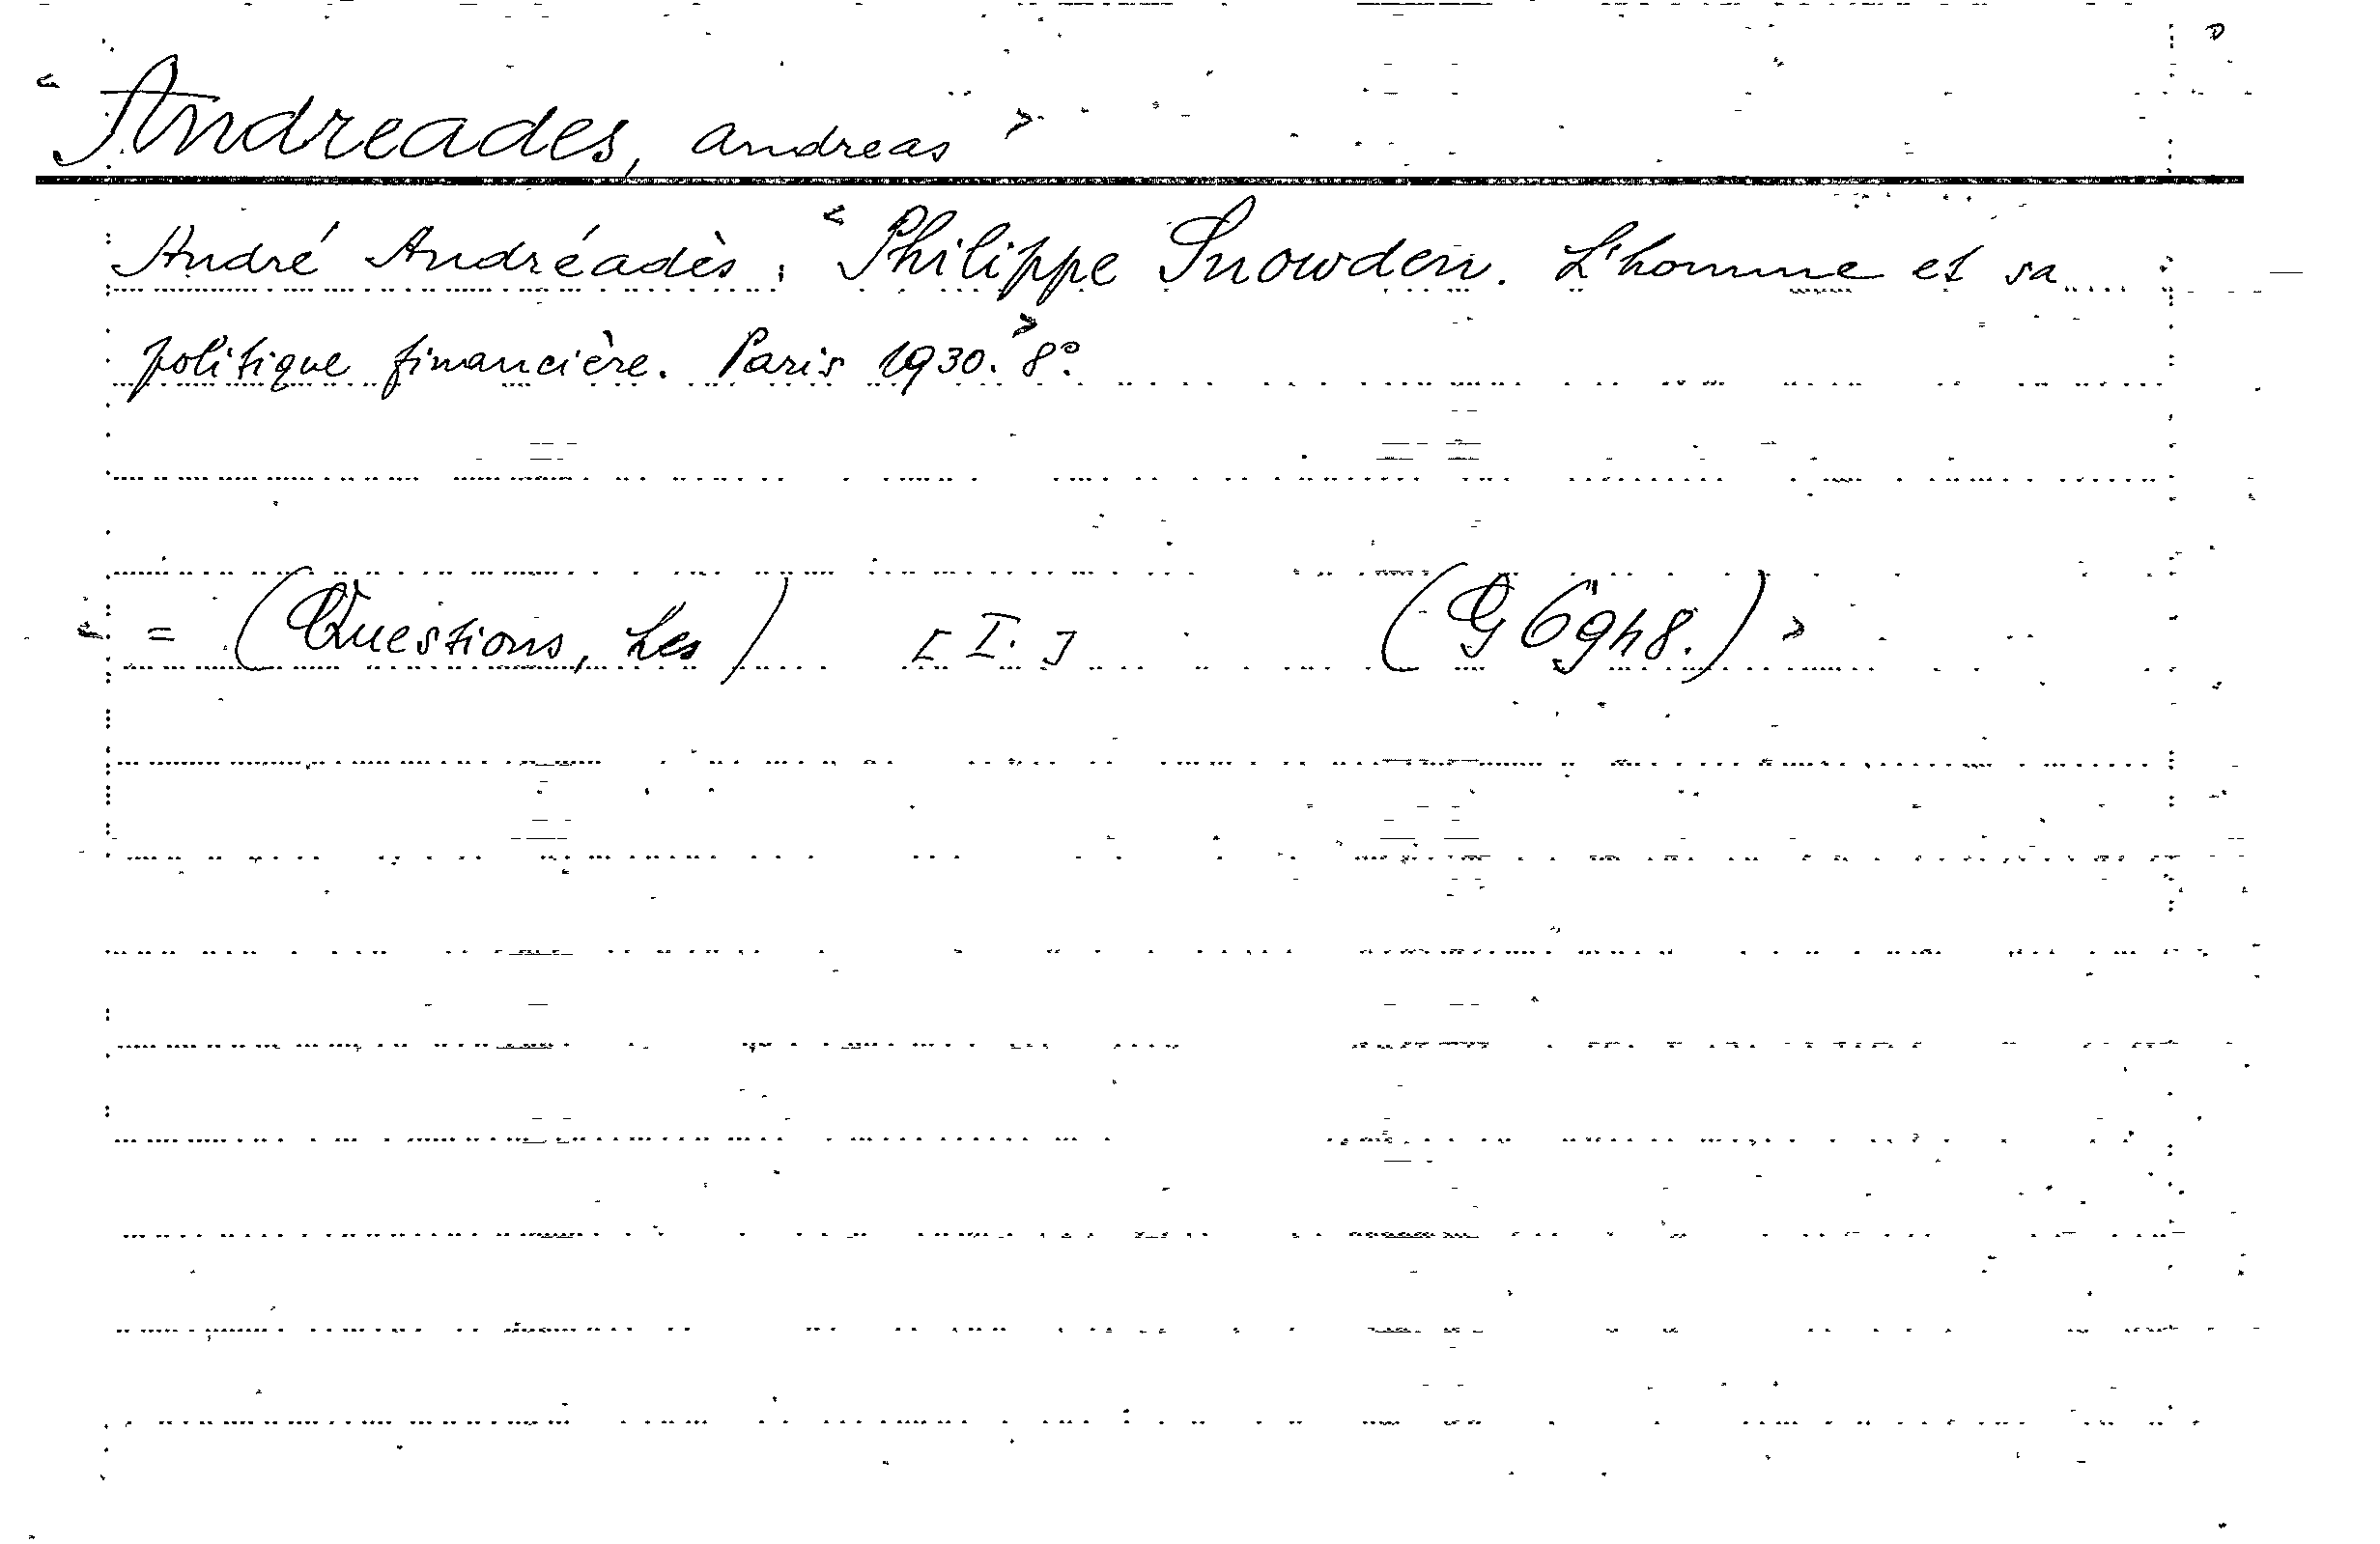 < Andreades, Andreas >
André Andréadès: < Philippe Snowden. L'homme et sa
politique financière. Paris 1930. > 8°.
< = (Questions, Les) [I.] (G 6948.) >